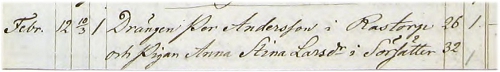 Febr. 12 10/3 1 Drängen Per Andersson i Rastorp 26 1 —
och Pigan Anna Stina Larsdr i Sörsätter 32